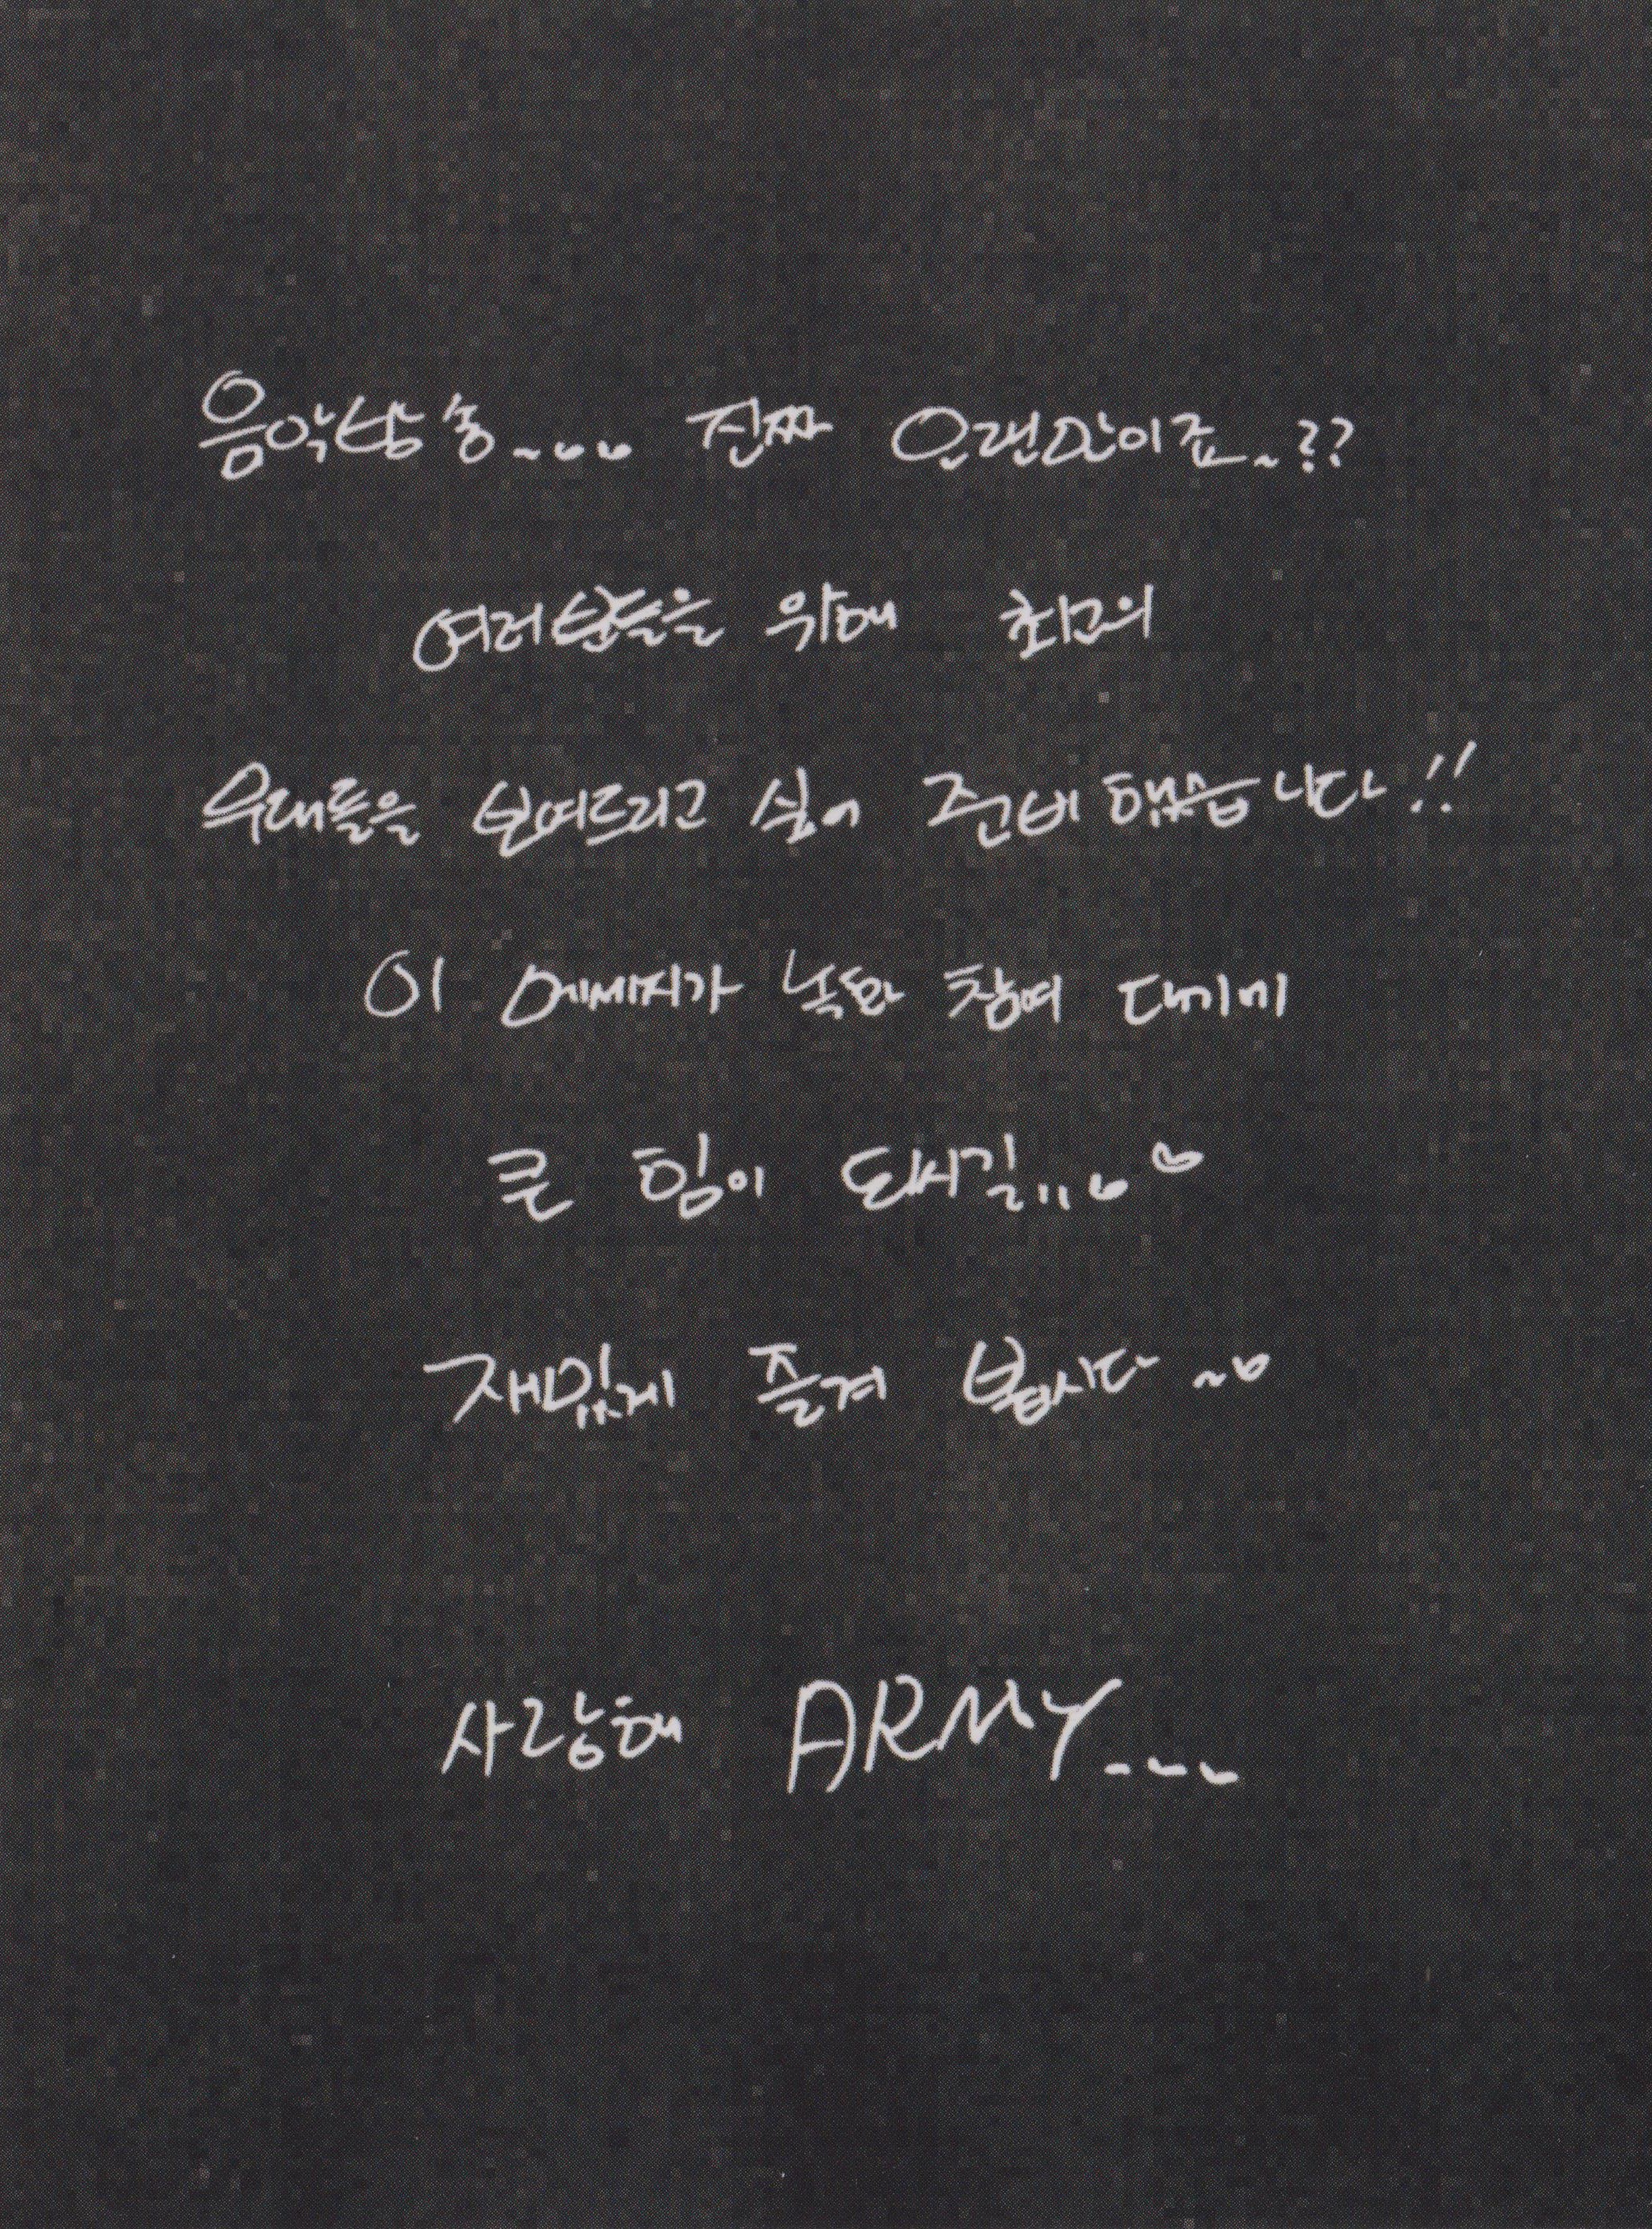 음악방송~.. 진짜 오랜만이죠~??
여러분들을 위해 최고의
무대들을 보여드리고 싶어 준비했습니다!!
이 메세지가 녹화 참여
큰 힘이 되시길...
재밌게 즐겨 봅시다~
사랑해 ARMY...